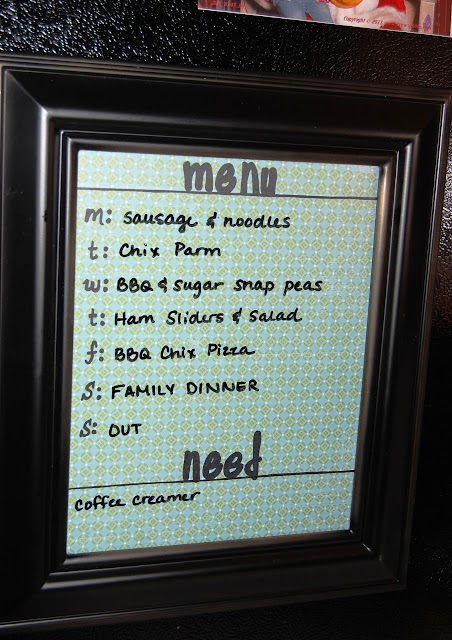 Copyright © 2011
menu
m: sausage & noodles
t: Chix Parm
w: BBQ & sugar snap peas
t: Ham Sliders & salad
f: BBQ Chix Pizza
s: FAMILY DINNER
s: OUT
need
coffee creamer